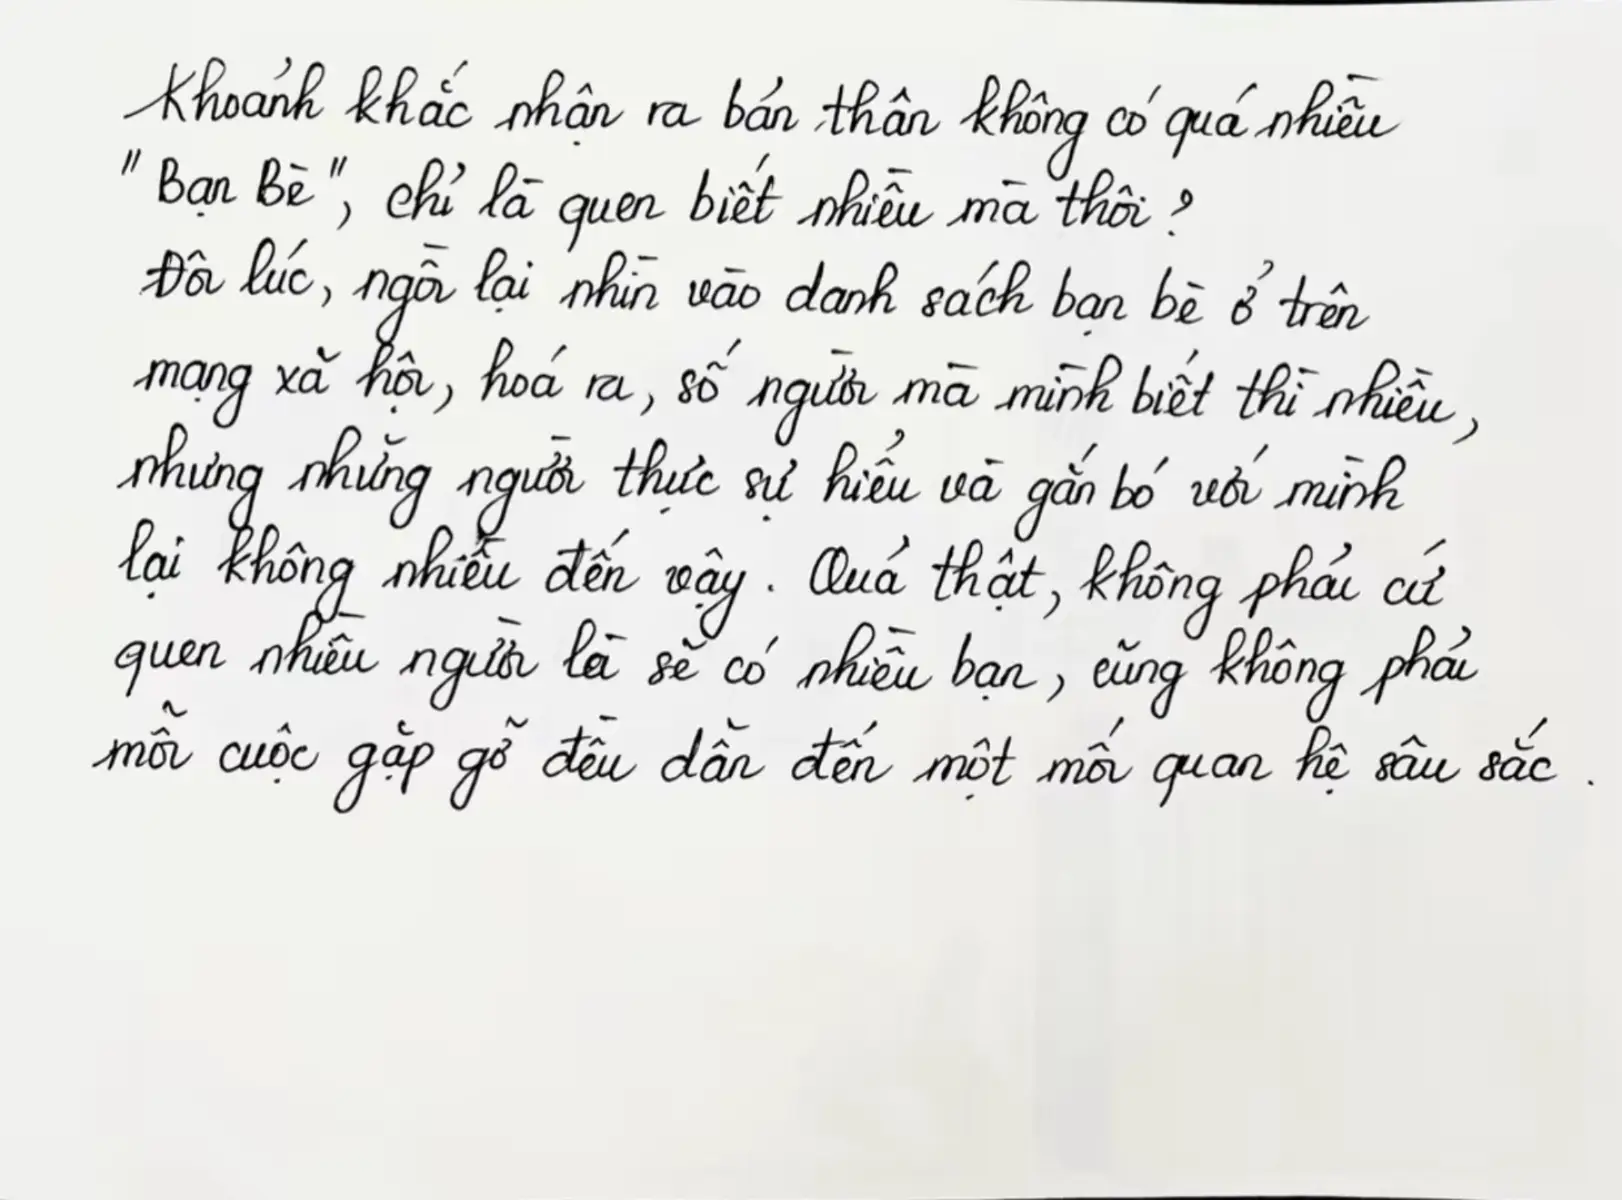 Khoảnh khắc nhận ra bản thân không có quá nhiều
"Bạn Bè", chỉ là quen biết nhiều mà thôi ?
Đôi lúc, ngồi lại nhìn vào danh sách bạn bè ở trên
mạng xã hội, hoá ra, số người mà mình biết thì nhiều,
nhưng những người thực sự hiểu và gắn bó với mình
lại không nhiều đến vậy. Quả thật, không phải cứ
quen nhiều người là sẽ có nhiều bạn, cũng không phải
mỗi cuộc gặp gỡ đều dẫn đến một mối quan hệ sâu sắc.